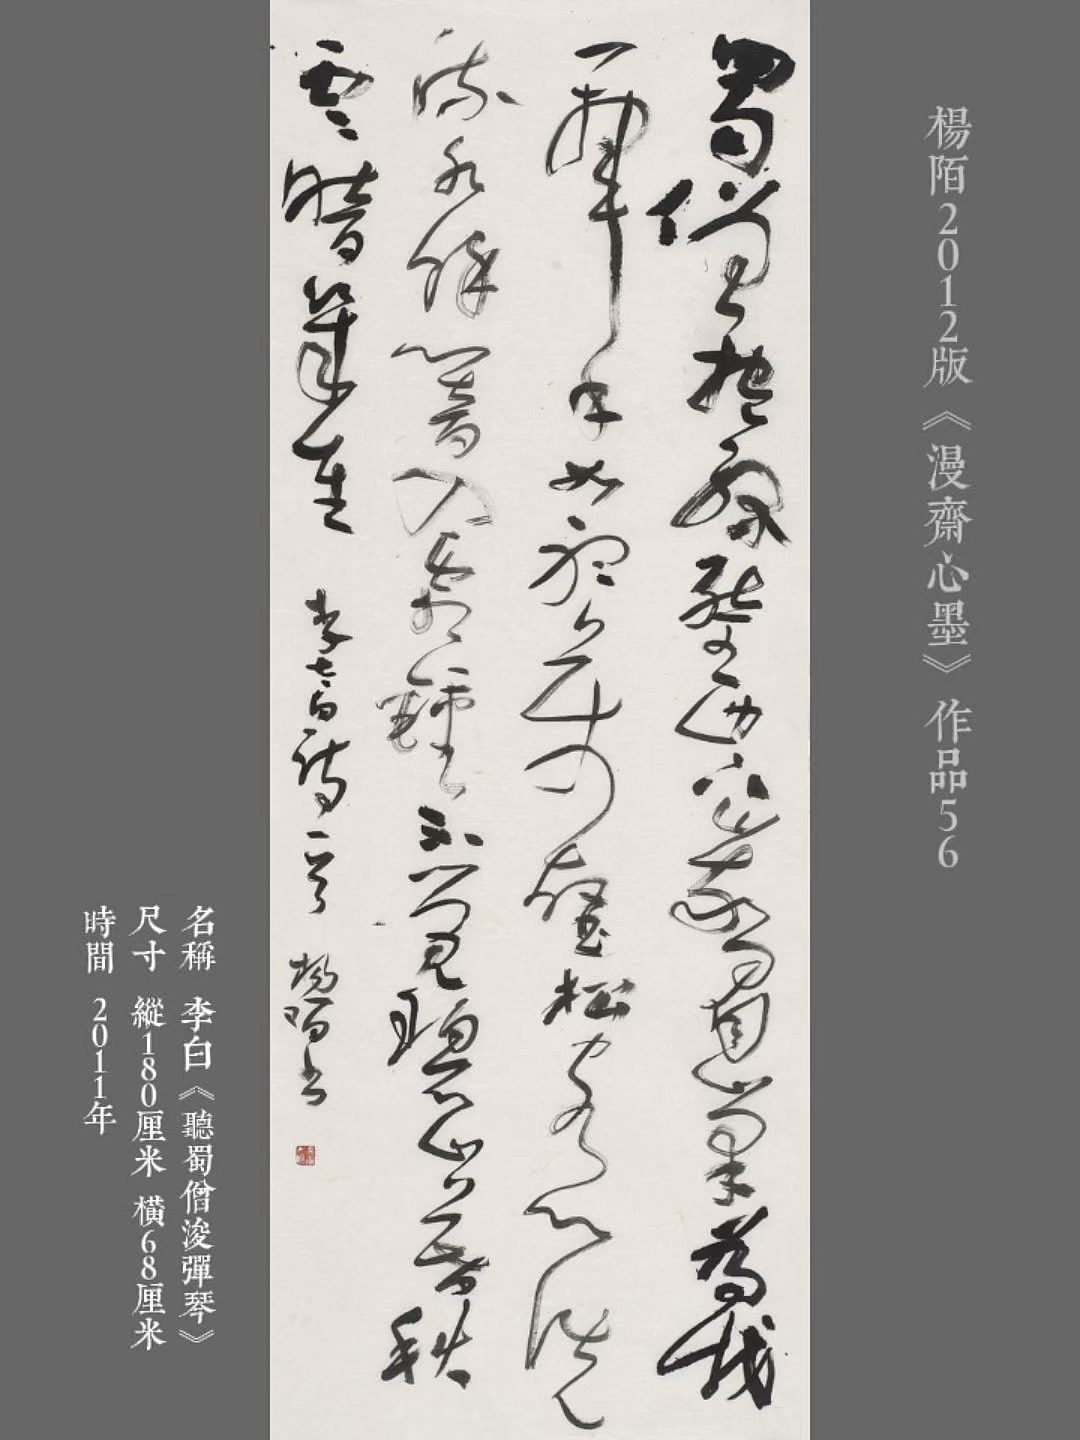 楊陌2012版《漫齋心墨》作品56
蜀僧抱綠綺西下峨眉峰為我
一揮手如聽萬壑松客心洗
流水餘響入霜鐘不覺碧山暮秋
雲暗幾重 李太白詩一首 楊陌書
名稱 李白《聽蜀僧浚彈琴》
尺寸 縱180厘米 橫68厘米
時間 2011年